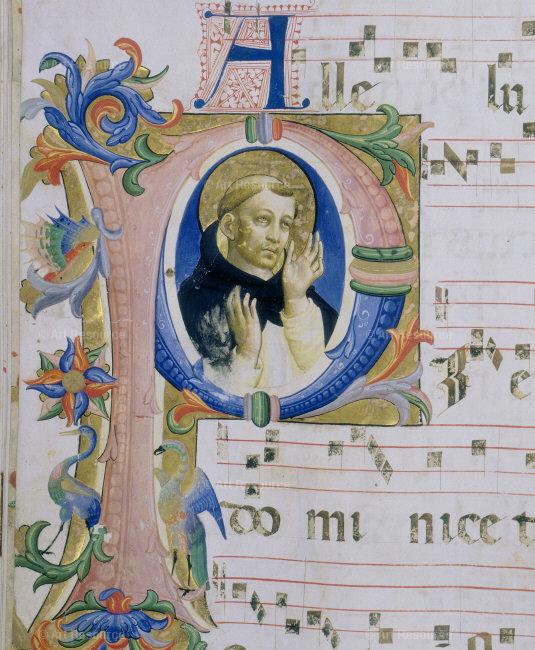 Alle lu
P
do mi nice t
© Art Resource